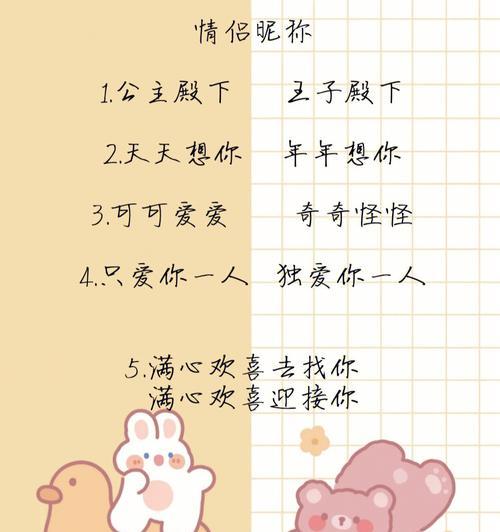 情侣昵称
1.公主殿下 王子殿下
2.天天想你 年年想你
3.可可爱爱 奇奇怪怪
4.只爱你一人 独爱你一人
5.满心欢喜去找你
满心欢喜迎接你